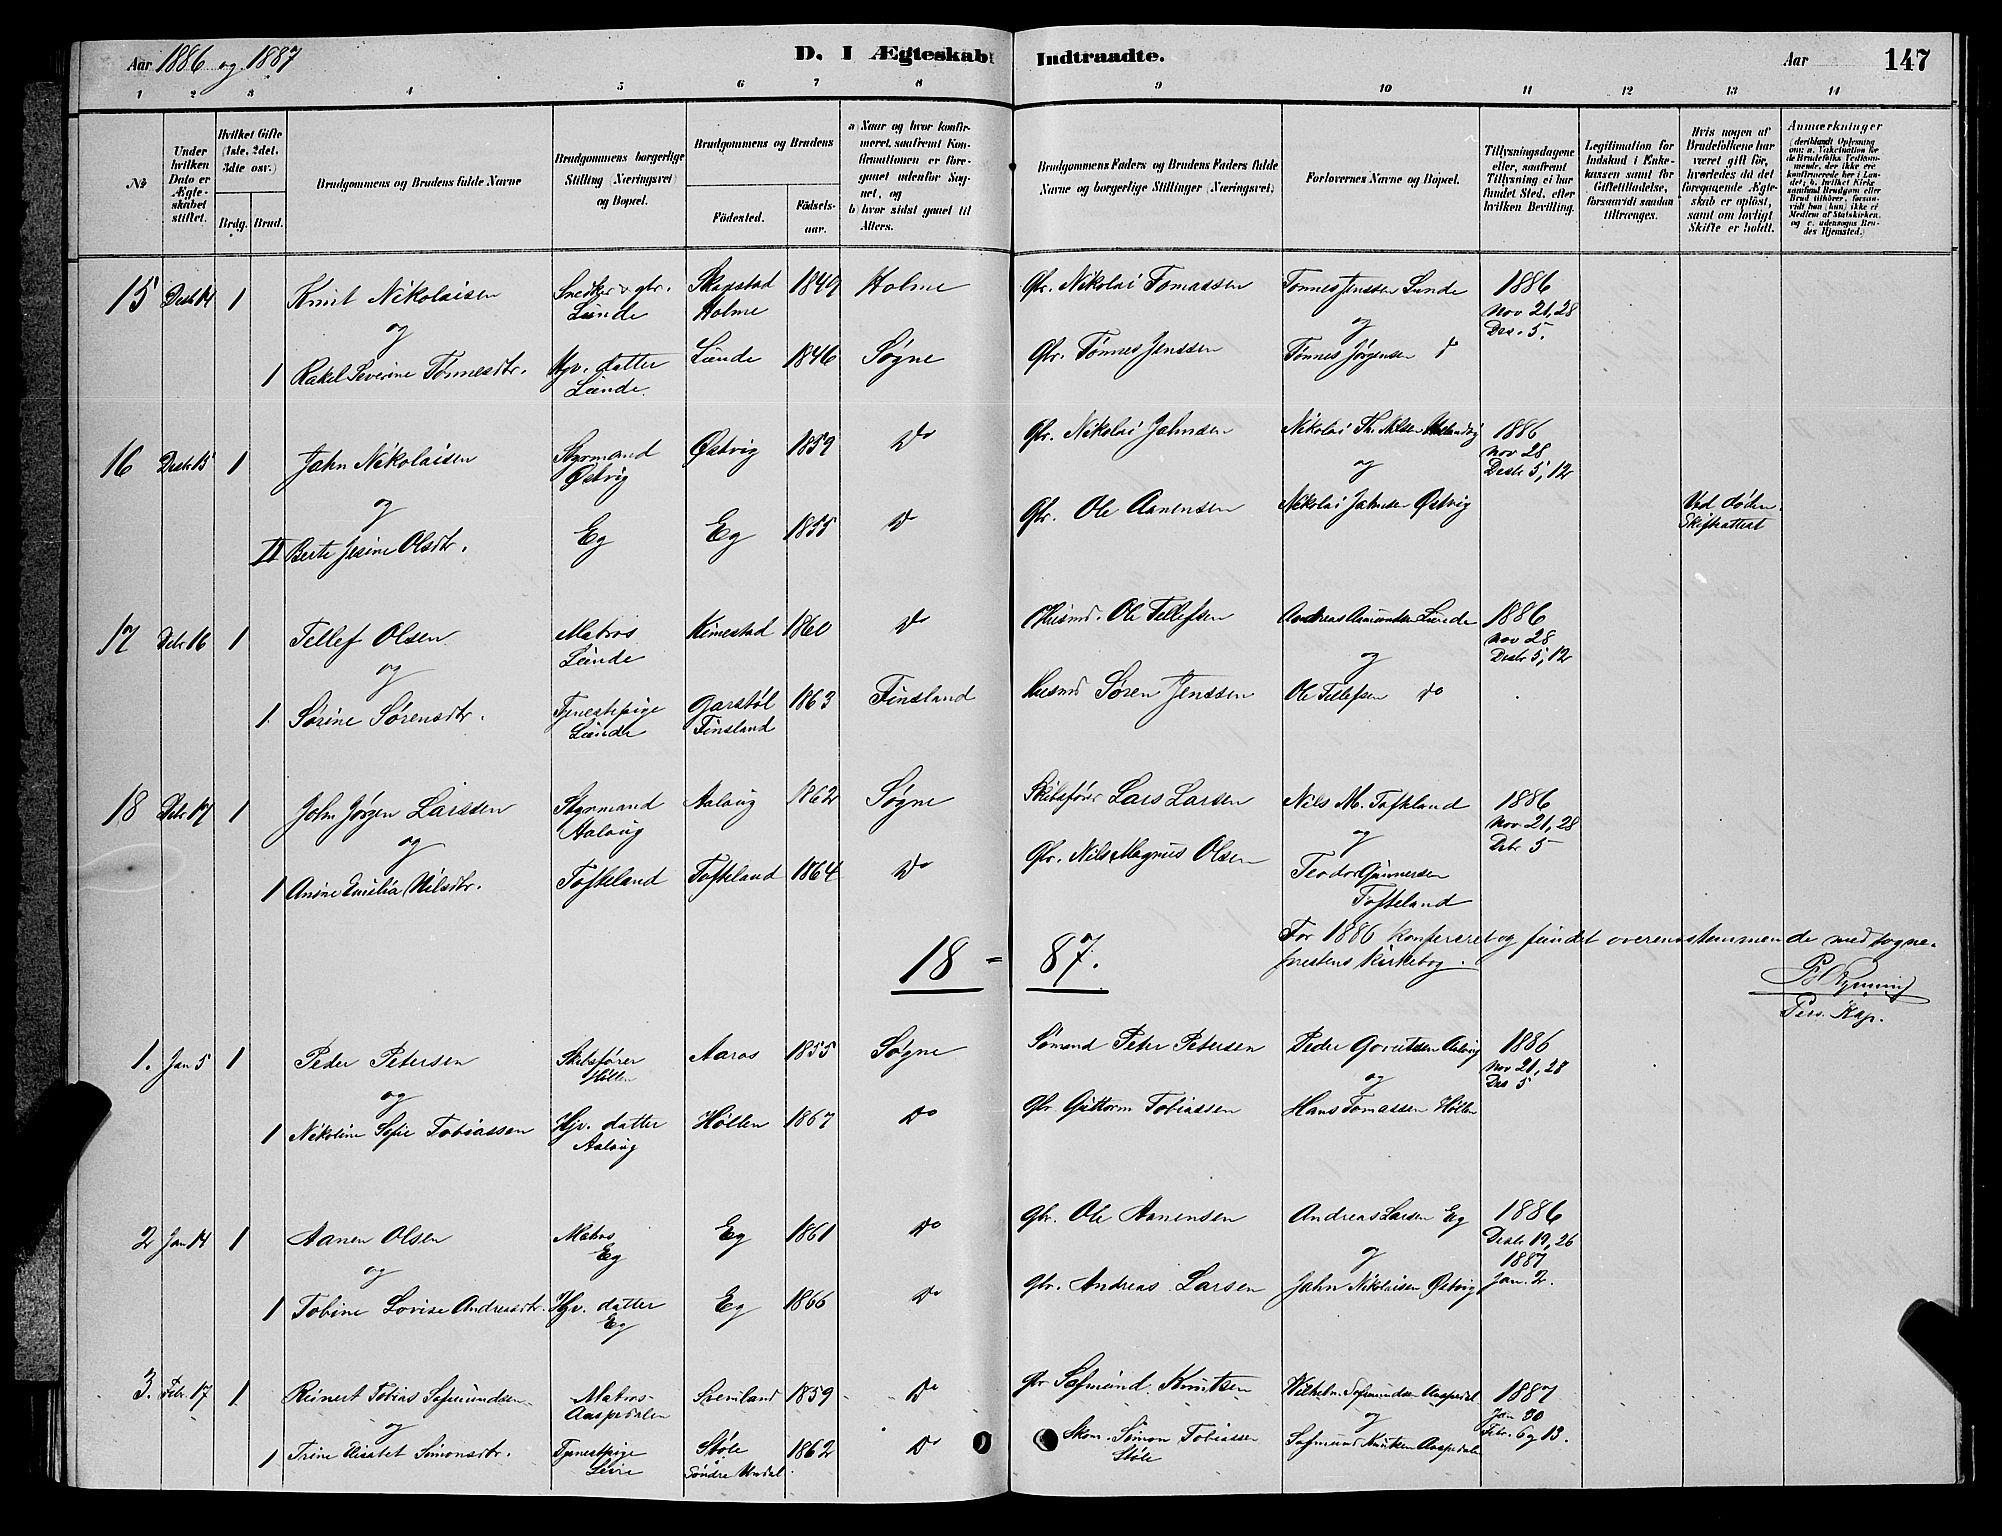 Aar 1886 og 1887 D. I Ægteskab Indtraadte. Aar 147
1 2 3 4 5 6 7 8 9 10 11 12 13 14
No
Under hvilken Dato er Ægteskabet stiftet.
Hvilket Gifte (1ste, 2det, 3die osv.)
Brdg. Brud.
Brudgommens og Brudens fulde Navne
Brudgommens borgerlige Stilling (Næringsvei) og Bopæl.
Brudgommens og Brudens
Fødested. Fødselsaar.
a) Naar og hvor konfirmeret, saafremt Konfirmationen er foregaaet udenfor Sognet, og
b) hvor sidst gaaet til Alters.
Brudgommens Faders og Brudens Faders fulde Navne og borgerlige Stillinger (Næringsvei)
Forlovernes Navne og Bopæl.
Tillysningsdagene eller, saafremt Tillysning ei har fundet Sted, efter hvilken Bevilling.
Legitimation for Indskud i Enkekassen samt for Giftetilladelse, forsaavidt saadan tiltrænges.
Hvis nogen af Brudefolkene har været gift før, hvorledes da det foregaaende Ægteskab er opløst, samt om lovligt Skifte er holdt.
Anmærkninger
15 Desbr 14 1 Knut Nikolaisen Snedker & gbr. Lunde Skagstad Holme 1849 Holme Gbr. Nikolai Tomassen Tønnes Jenssen Lunde 1886 Nov 21, 28 Des. 5.
og og
1 Rakel Severine Tønnesdtr. Hjv. datter Lunde. Lunde 1846 Søgne Gbr. Tønnes Jenssen Tønnes Jørgensen
16 Desbr 15 1 Jahn Nikolaisen Styrmand Østvig Østvig 1859 Do Gbr. Nikolai Jahnsen Nikolai Th. Nilsen 1886 Nov 28 Desbr 5, 12
og og
II Berte Jesine Olsdtr. Eg Eg 1855 Do Gbr. Ole Aanensen Nikolai Jahnsen Østvig Ved døden. Skifteattest
17 Debr 16 1 Tellef Olsen Matros Lunde Kimestad 1860 Do Husmd. Ole Tellefsen Andreas Aamundsen Lunde 1886 Nov 28 Desbr 5, 12
og og
1 Sørine Sørensdtr. Tjenestepige Lunde Garstøl Finsland 1863 Finsland Husmd Søren Jenssen Ole Tellefsen Do
18 Debr 17 1 John Jørgen Larssen Styrmand Aalvig Aalvig 1862 Søgne Skibsfører Lars Larsen Nils M. Toftland 1886 Nov 21, 28 Debr 5
og og
1 Anine Emilia Nilsdtr. Tofteland Tofteland 1864 Do Gbr. Nils Magnus Olsen Teodor Gunnersen Tofteland
18 = 87.
For 1886 konfereret og fundet overensstemmende med Sogneprestens kirkebog.
Pers. Kap.
1. Jan 5 1 Peder Petersen Skibsfører Høllen Aaros 1855 Søgne Sømand Peter Petersen Peder Aalvig 1886 Nov 21, 28 Des 5
og og
1 Nikoline Sofie Tobiassen Hjv. datter Aalvig Høllen 1867 Do Gbr Guttorm Tobiassen Hans Tomassen Høllen
2 Jan 14 1 Aanen Olsen Matros Eg Eg 1861 Do Gbr. Ole Aanensen Andreas Larsen Eg 1886 Desbr 19, 26 1887 Jan. 2.
og og
1 Tobine Lovise Andreasdtr. Hjv. datter Eg Eg 1866 Do Gbr. Andreas Larsen Jahn Nikolaisen Østvig
3. Febr. 17 1 Reinert Tobias Sofmundsen Matros Aaspedalen 1859 Do Gbr Sofmund Knutsen Wilhelm Sofmundsen Aaspedal 1887 Jan 30 Febr. 6 og 13.
og og
1 Trine Elisabet Simonsdtr. Tjenestepige Støle Søndre Undal 1862 Do Skom. Simon Tobiassen Støle Sofmund Knutsen Aaspedalen